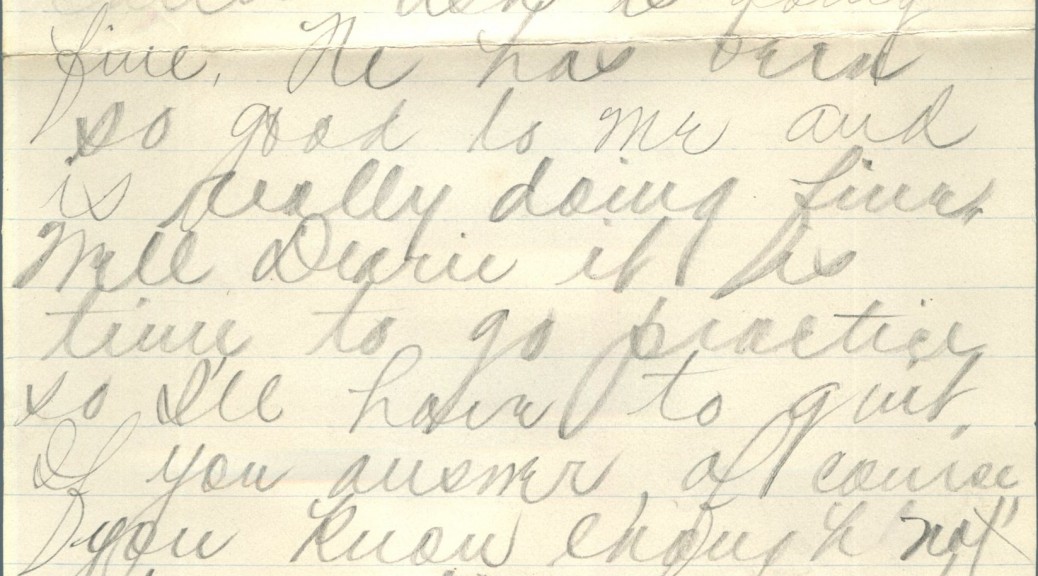 is going
fine, He has been
so good to me and
is really doing fine.
Well Dearie it is
time to go practice
so I'll have to quit.
If you answer, of course
you know enough "not"